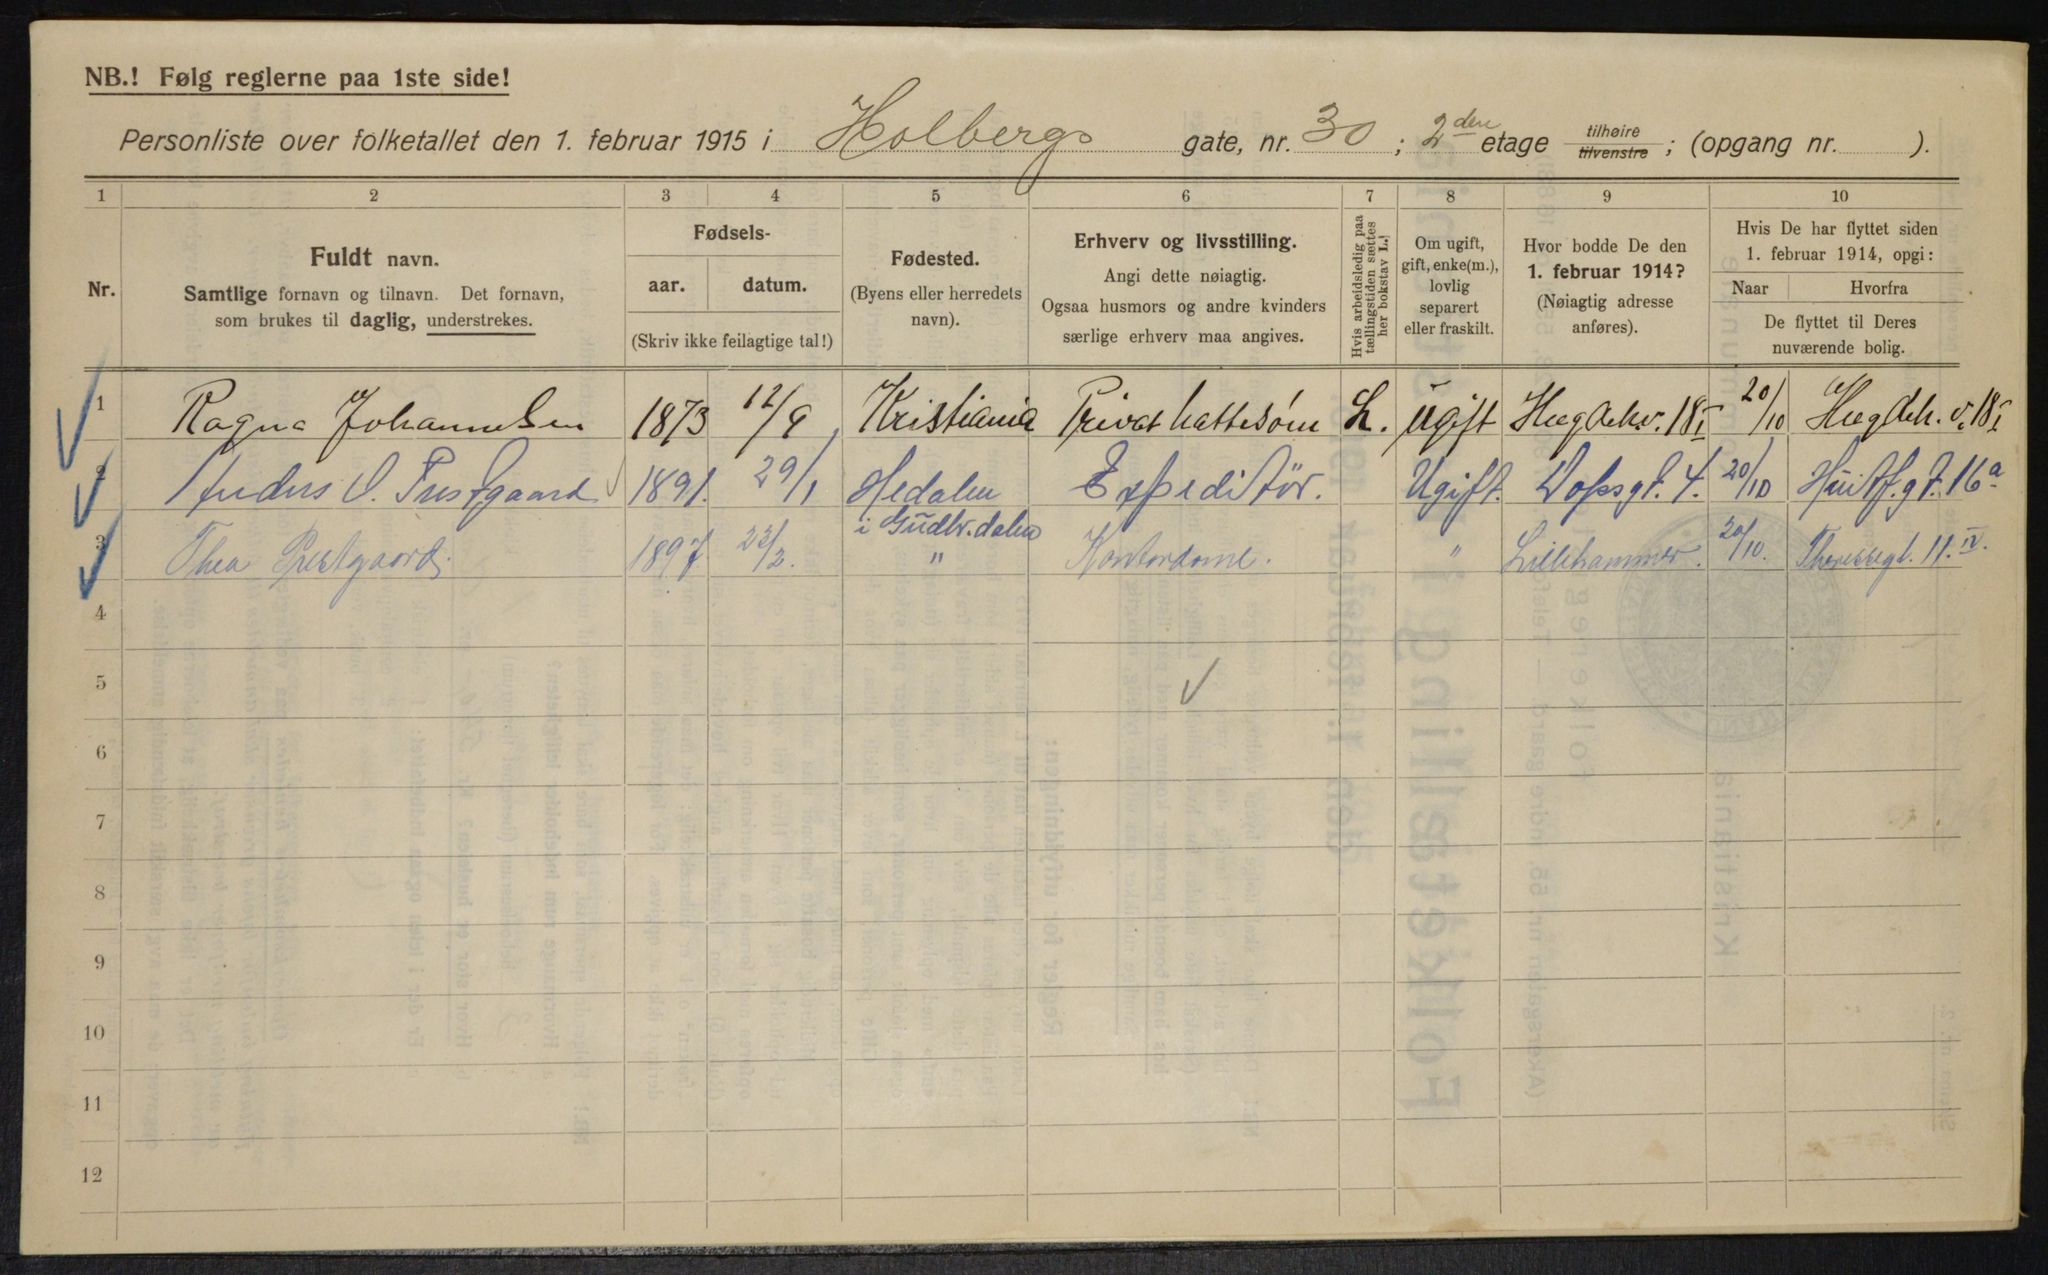 NB.! Følg reglerne paa 1ste side!
Personliste over folketallet den 1. februar 1915 i Holbergs gate, nr. 30; 2den etage tilhøire tilvenstre; (opgang nr. ).
1 2 3 4 5 6 7 8 9 10
Nr.
Fuldt navn.
Samtlige fornavn og tilnavn. Det fornavn,
som brukes til daglig, understrekes.
Fødsels-
aar. datum.
(Skriv ikke feilagtige tal!)
Fødested.
(Byens eller herredets
navn).
Erhverv og livsstilling.
Angi dette nøiagtig.
Ogsaa husmors og andre kvinders
særlige erhverv maa angives.
Hvis arbeidsledig paa
tællingstiden sættes
her bokstav L.!
Om ugift,
gift, enke(m.),
lovlig
separert
eller fraskilt.
Hvor bodde De den
1. februar 1914?
(Nøiagtig adresse
anføres).
Hvis De har flyttet siden
1. februar 1914, opgi:
Naar Hvorfra
De flyttet til Deres
nuværende bolig.
1 Ragna Johannesen 1873 12/9 Kristiania Privat hattesøm L. ugift Hægdehv. 18 I 20/10 Hægdeh.v. 18 I
2 Anders O. Prestgaard 1891. 29/1 Hedalen Expeditör. Ugift. Vossgt. 4. 20/10 Huitf.gt. 16a
i Gudbr.dalen
3 Thea Prestgaard. 1897 23/2. " Kontordame. " Lillehammer. 20/10. Theresegt. 11. IV.
4
5
6
7
8
9
10
11
12